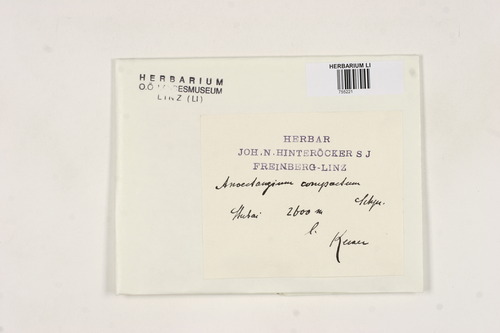 HERBARIUM
O.Ö. LANDESMUSEUM
LINZ (LI)
HERBARIUM LI
HERBAR
JOH. N. HINTERÖCKER S J
FREINBERG-LINZ
Anoectangium compactum
Schgr.
Stubai 2600 m
l.